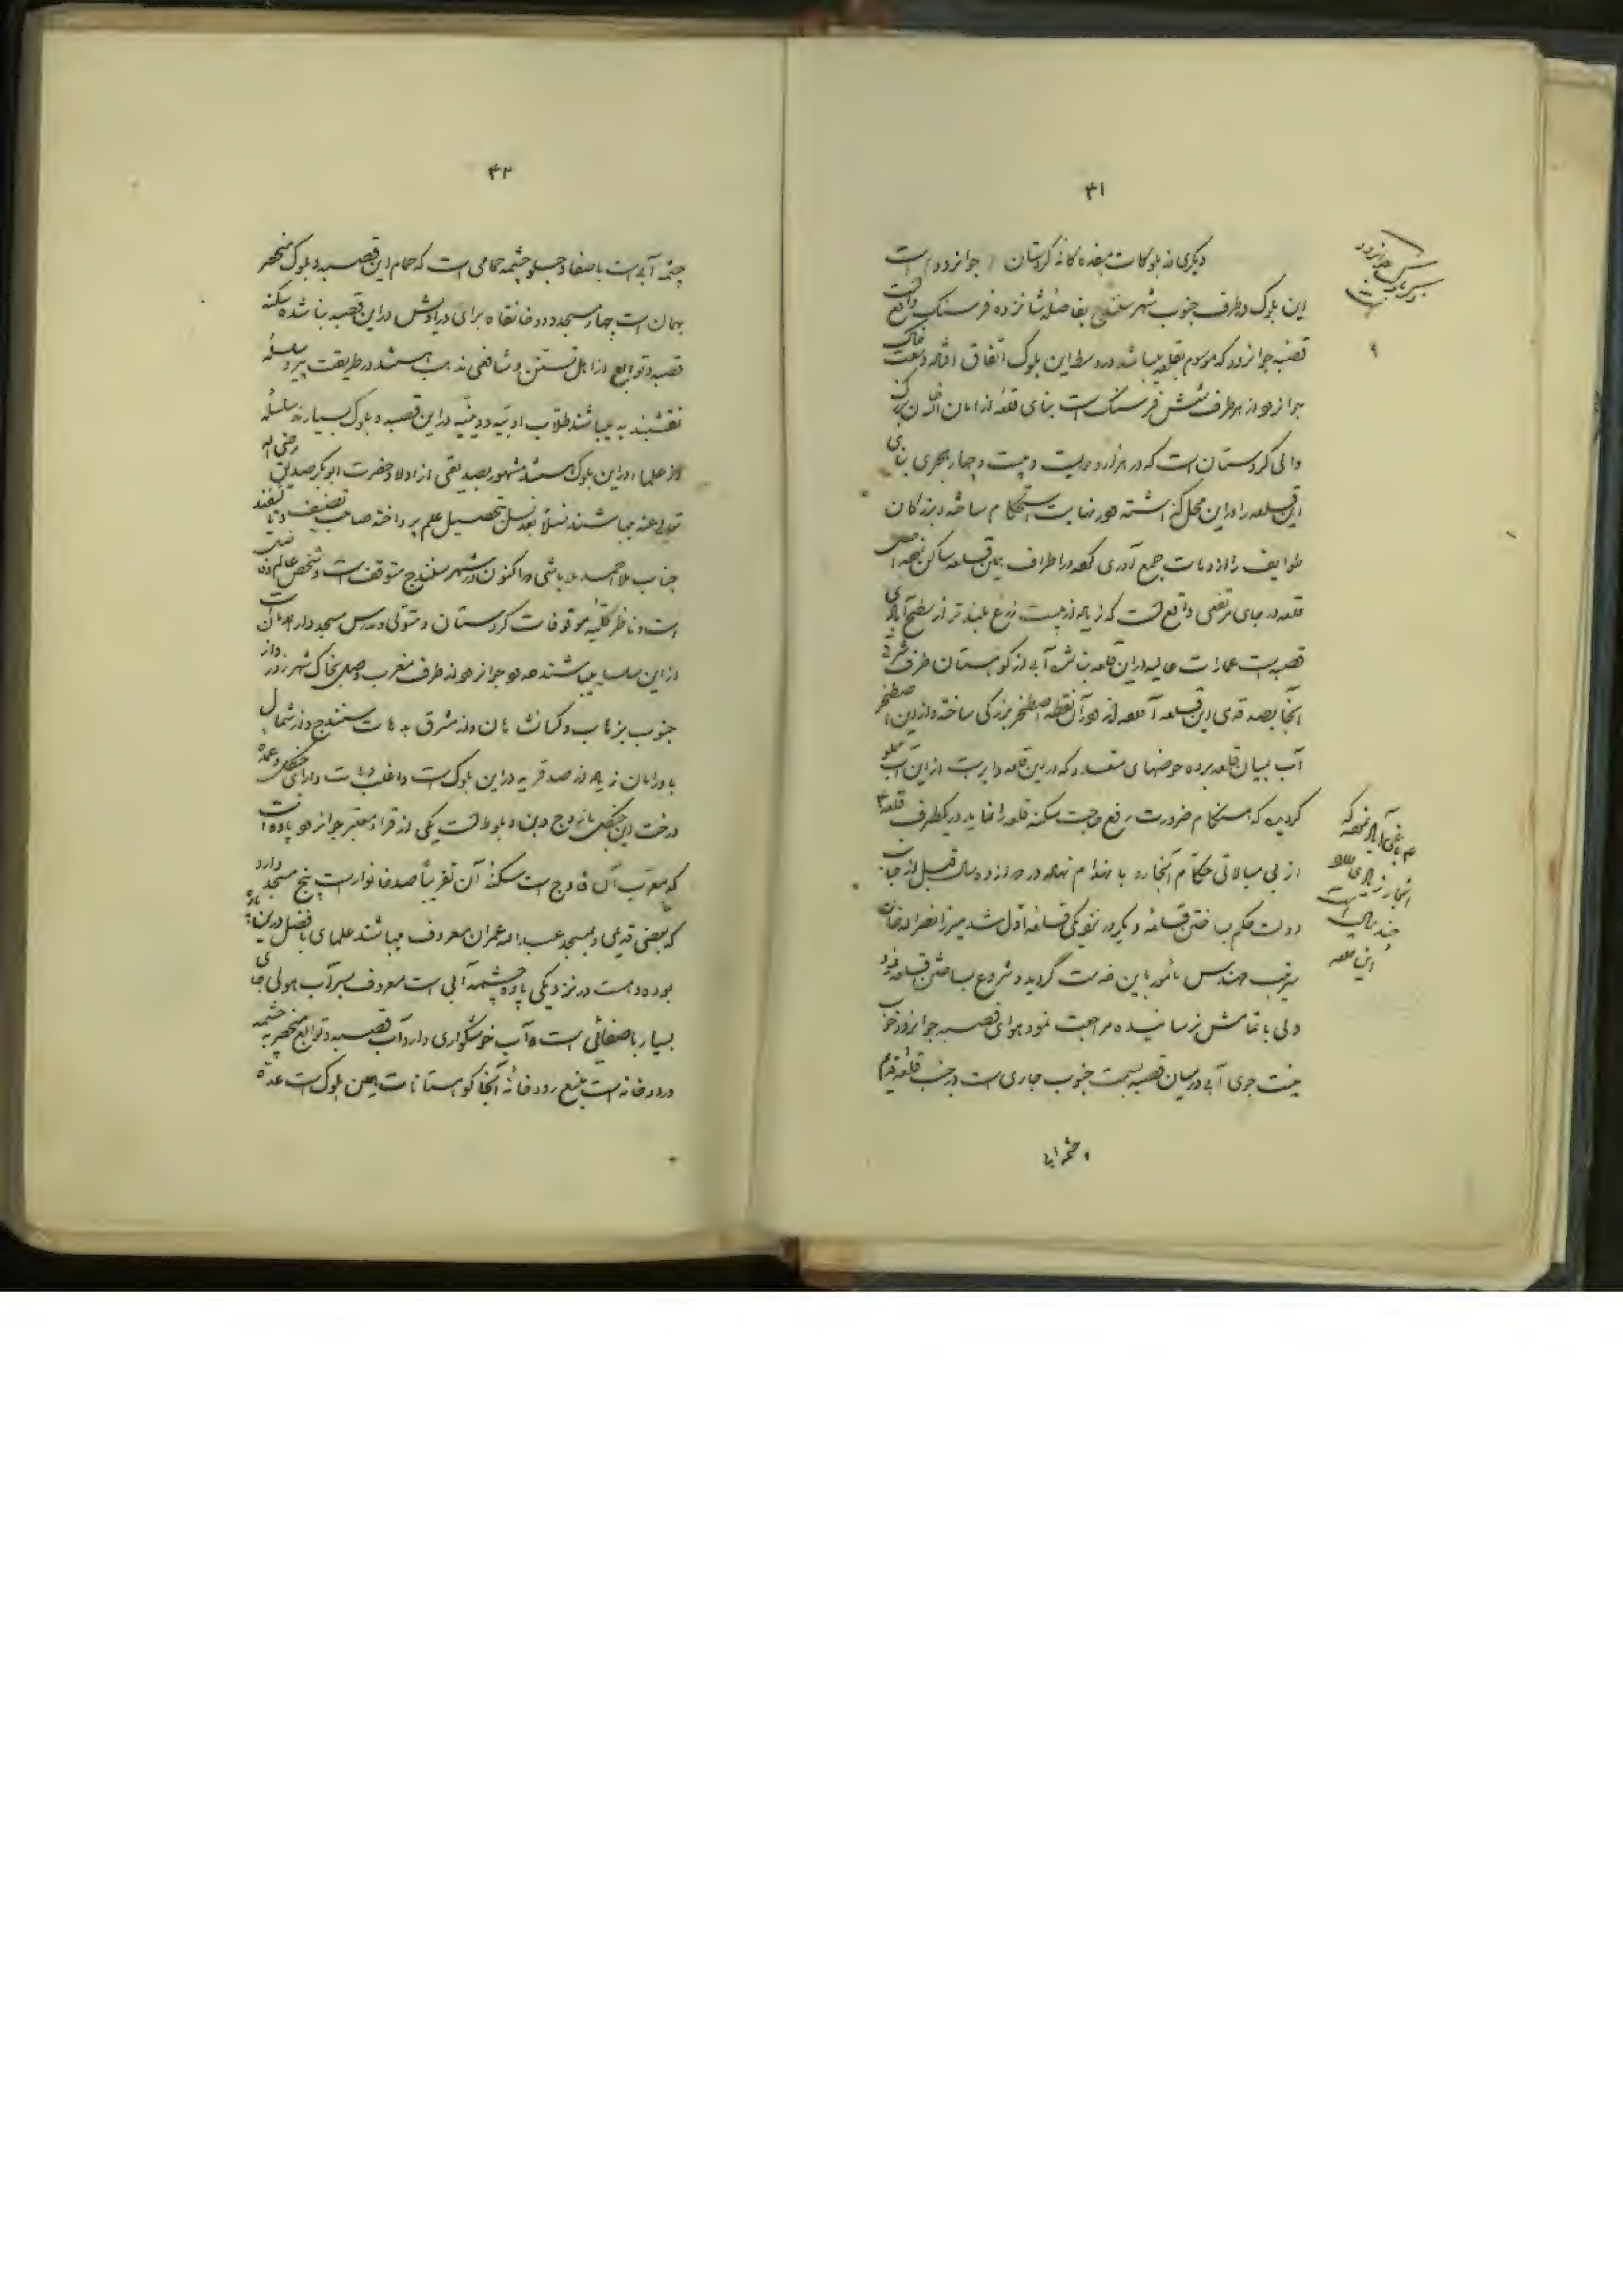 ۴۱
دیگری از بلوکات هفده گانه کردستان (جوانرود) است
این بلوک در طرف جنوب شهر سنندج بفاصله شانزده فرسنگ واقع است
قصبه جوانرود که موسوم بقلعه میباشد در وسط این بلوک اتفاق افتاده وسعت خاک
جوانرود از هر طرف شش فرسنگ است بنای قلعه از امان الله خان بزرگ
والی کردستان است که در هزار و دویست و بیست و چهار هجری بنای
این قلعه را در این محل گذاشته و در نهایت استحکام ساخته و بزرگان
طوایف را از دهات جمع آوری کرده در اطراف همین قلعه ساکن نموده
قلعه در جای مرتفعی واقع است که زیاده از بیست ذرع بلندتر از سطح آبادی
قصبه است عمارات عالیه در این قلعه بنا شده آبی از کوهستان طرف شرقی
آنجا بصد قدمی این قلعه آمده در آن نقطه اصطخر بزرگی ساخته و از این اصطخر
آب بمیان قلعه برده حوضهای متعدد که در این قلعه دایر است از این آب مملو
گردیده که هنگام ضرورت رفع حاجت سکنه قلعه را نماید در یکطرف قلعه
از بی مبالاتی حکام آنجا رو به انهدام نهاده در دوازده سال قبل از جانب
دولت حکم بساختن قلعه دیگر در نزدیکی قلعه اول شد میرزا نصرالله خان
سرتیپ مهندس مأمور باین خدمت گردید و شروع بساختن قلعه نمود
ولی باتمامش نرسانیده مراجعت نمود هوای قصبه جوانرود خوب
نیست جوی آبی در میان قصبه بسمت جنوب جاری است در جنب قلعه قدیم
چشمه آبی
ذکر بلوک جوانرود است
۹
۴۲
چشمه آبی است باصفا و جلو چشمه حمامی است که حمام این قصبه و بلوک منحصر
بهمان است چهار مسجد و دو خانقاه برای دراویش در این قصبه بنا شده سکنه
قصبه و توابع از اهل تسنن و شافعی مذهب هستند در طریقت پیرو سلسله
نقشبندیه میباشند طلاب ادبیه و دینیه در این قصبه و بلوک بسیارند سلسله
از علما در این بلوک هستند مشهور بصدیقی از اولاد حضرت ابوبکر صدیق رضی الله
تعالی عنه میباشند نسلاً بعد نسل بتحصیل علم پرداخته صاحب تصنیف و تألیفند
جناب ملا احمد ملاباشی که اکنون در شهر سنندج متوقف است و شخص عالم
است و ناظر کلیه موقوفات کردستان و متولی و مدرس مسجد دارالامان است
از این سلسله میباشند حدود جوانرود از طرف مغرب وصل بخاک شهرزور و از
جنوب بزهاب و کرمانشاهان و از مشرق بدهات سنندج و از شمال
باورامان زیاده از صد قریه در این بلوک است و اغلب دهات دارای جنگل و عمده
درخت این جنگل مازوج و بن و بلوط است یکی از قراء معتبر جوانرود پاوه است
که معرب آن فاوج است سکنه آن تقریباً صد خانوار است پنج مسجد دارد
که بعضی قدیمی و بمسجد عبدالله عمران معروف میباشد علمای بافضل در این
بوده و هست در نزدیکی پاوه چشمه آبی است معروف بسرآب هولی جای
بسیار باصفائی است و آب خوشگواری دارد آب قصبه و توابع منحصر به چشمه
و رودخانه است منبع رودخانه آنجا کوهستانات همین بلوک است عمده